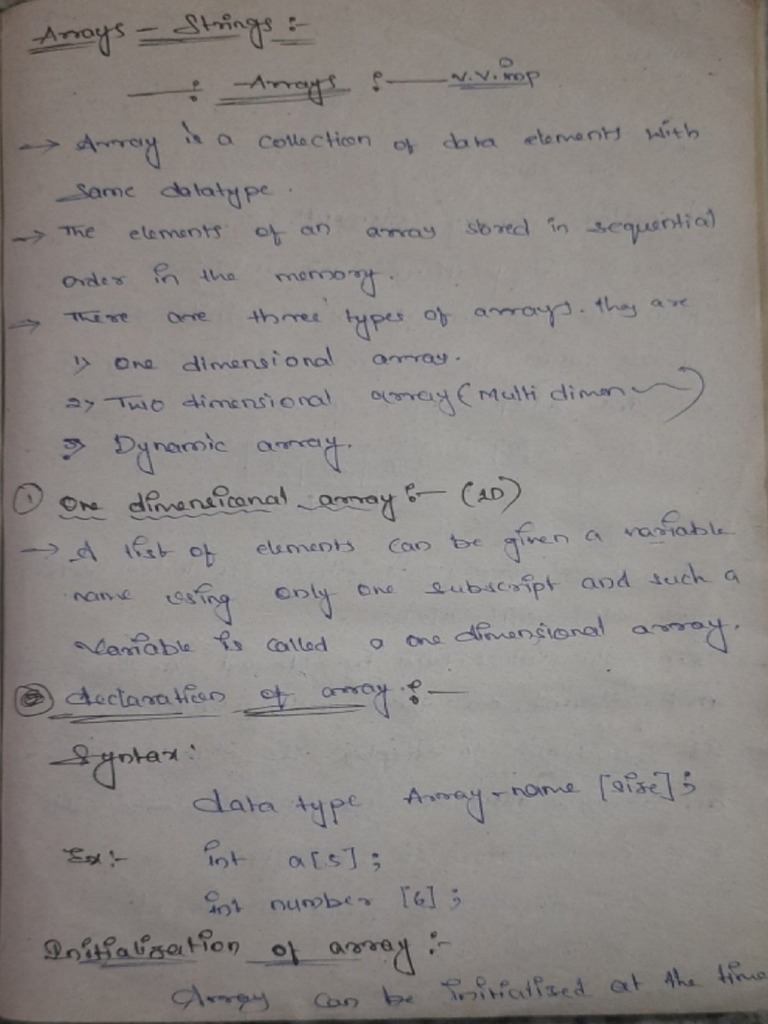 Arrays - Strings :-
—: Arrays :— v.v.imp
→ Array is a collection of data elements with
same datatype.
→ The elements of an array stored in sequential
order in the memory.
→ There are three types of arrays. they are
1> One dimensional array.
2> Two dimensional array (Multi dimen
3> Dynamic array.
① One dimensicanal array :- (1D)
→ A list of elements can be given a variable
name using only one subscript and such a
variable is called a one dimensional array.
declaration of array :—
Syntax:
data type Array-name [size];
Ex:- int a[5];
int number [6];
Initialisation of array :-
Array can be initialised at the time